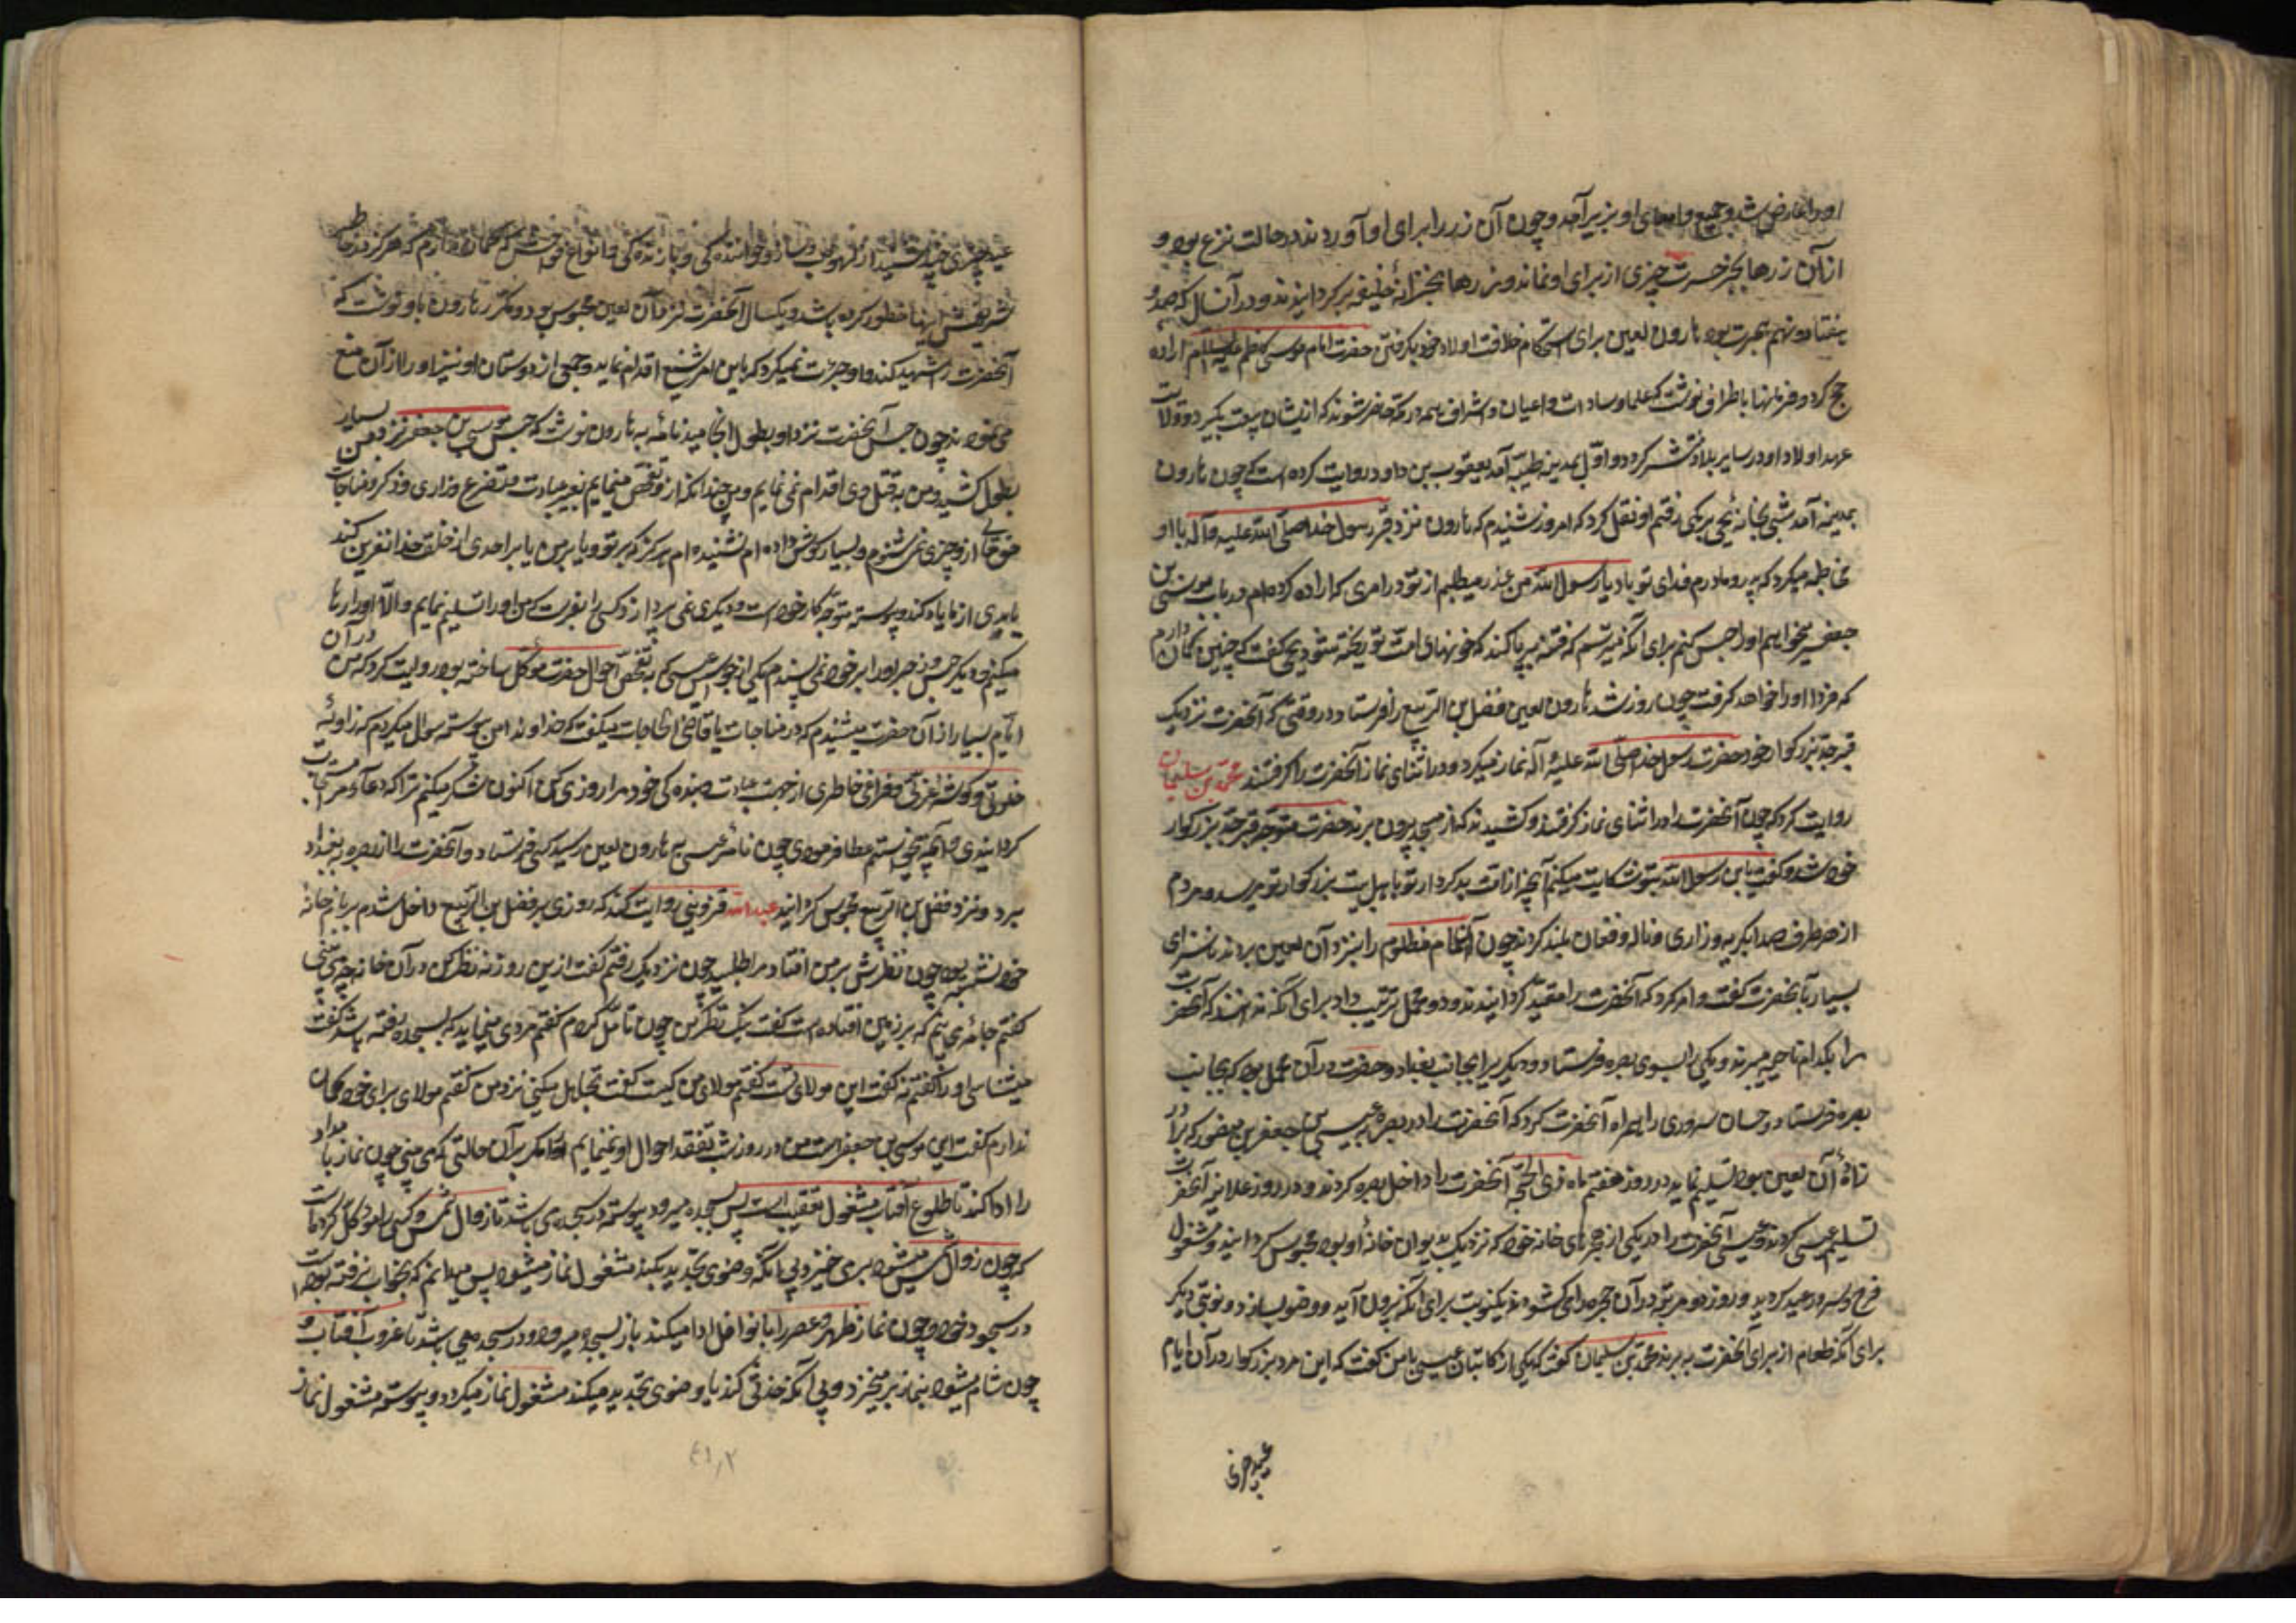 او را عارض شد و جمیع امعای او بزیر آمد و چون آن زر را برای او آوردند در حالت نزع بود و
از آن زرها بجز حسرت چیزی از برای او نماند و زرها بخزانهٔ خلیفه برگردانیدند و در آن سال که صد و
هفتاد و نهم هجرت بود هارون لعین برای استحکام خلافت اولاد خود بگرفتن حضرت امام موسی کاظم علیه السلام اراده
حج کرد و فرمانها باطراف نوشت که علما و سادات و اعیان و اشراف همه در مکه حاضر شوند که از ایشان بیعت بگیرد و ولایت
عهد اولاد او در سایر بلاد منتشر گردد و اول بمدینه طیبه آمد یعقوب بن داود روایت کرده است که چون هارون
بمدینه آمد شبی بخانهٔ یحیی برمکی رفتم او نقل کرد که امروز شنیدم که هارون نزد قبر رسول خدا صلی الله علیه و آله با او
مخاطبه میکرد که پدر و مادرم فدای تو باد یا رسول الله من عذر میطلبم از تو در امری که اراده کرده‌ام در باب موسی بن
جعفر میخواهم او را حبس کنم برای آنکه میترسم که فتنه برپا کند که خونهای امت تو ریخته شود یحیی گفت که چنین گمان دارم
که فردا او را خواهد گرفت چون روز شد هارون لعین فضل بن الربیع را فرستاد در وقتی که آنحضرت نزدیک
قبر جد بزرگوار خود حضرت رسول خدا صلی الله علیه و آله نماز میکرد و در اثنای نماز آنحضرت را گرفتند محمد بن سلیمان
روایت کرد که چون آنحضرت را در اثنای نماز گرفتند و کشیدند که از مسجد بیرون برند حضرت متوجه قبر جد بزرگوار
خود شد و گفت یا رسول الله بتو شکایت میکنم آنچه از امت بدکردار تو باهل بیت بزرگوار تو میرسد و مردم
از هر طرف صدا بگریه و زاری و ناله و فغان بلند کردند چون آن امام مظلوم را بنزد آن لعین بردند ناسزای
بسیار بآنحضرت گفت و امر کرد که آنحضرت را مقید گردانیدند و دو محمل ترتیب داد برای آنکه ندانند که آنحضرت
را بکدام ناحیه میبرند و یکی را بسوی بصره فرستاد و دیگری را بجانب بغداد و حضرت در آن محمل بود که بجانب
بصره فرستاد و حسان سروری را همراه آنحضرت کرد که آنحضرت را در بصره بعیسی بن جعفر بن منصور که برادر
زادهٔ آن لعین بود تسلیم نماید در روز هفتم ماه ذی الحجه آنحضرت را داخل بصره کردند و در روز علانیه آنحضرت
تسلیم عیسی کردند و عیسی آنحضرت را در یکی از حجرهای خانه خود که نزدیک بدیوان خانهٔ او بود محبوس گردانید و مشغول
فرح و سرور عید گردید و روز دو مرتبه در آن حجره را میگشودند یکنوبت برای آنکه بیرون آید و وضو بسازد و نوبتی دیگر
برای آنکه طعام از برای آنحضرت ببرند محمد بن سلیمان گفت که یکی از کاتبان عیسی با من گفت که این مرد بزرگوار در آن ایام
عید چیزی چند شنید از لهو و لعب و ساز و خوانندگی و بازندگی و انواع فواحش که گمان ندارم که هرگز در خاطر
شریفش اینها خطور کرده باشد و یکسال آنحضرت نزد آن لعین محبوس بود و مکرر هارون باو نوشت که
آنحضرت را شهید کند و او جرئت نمیکرد که باین امر شنیع اقدام نماید و جمعی از دوستان او نیز او را از آن منع
می‌نمودند چون حبس آنحضرت نزد او بطول انجامید نامه به هارون نوشت که حبس موسی بن جعفر نزد من بسیار
بطول کشید و من به قتل وی اقدام نمی نمایم و من چندانکه از او تفحص مینمایم بغیر عبادت و تضرع و زاری و ذکر و مناجات
حق تعالی از او چیزی نمی شنوم و بسیار گوش داده‌ام نشنیده‌ام هرگز که بر تو و یا بر من یا بر احدی از خلق خدا نفرین کند
یا بدی از ما یاد کند و پیوسته متوجه کار خود است و بدیگری نمی پردازد کسی را بفرست که من او را تسلیم نمایم و الا او را رها
میکنم و دیگر حبس و زجر او را بر خود نمی‌پسندم یکی از جواسیس عیسی که به تفحص احوال حضرت موکل ساخته بود روایت کرد که من در آن
ایام بسیار از آن حضرت میشنیدم که در مناجات با قاضی الحاجات میگفت که خداوندا من پیوسته سؤال میکردم که زاویهٔ
خلوتی و گوشهٔ عزلتی و فراغ خاطری از جهت عبادت و بندگی خود مرا روزی کنی اکنون شکر میکنم ترا که دعای مرا مستجاب
گردانیدی و آنچه میخواستم عطا فرمودی چون نامهٔ عیسی به هارون لعین رسید کس فرستاد و آنحضرت را از بصره به بغداد
برد و نزد فضل بن الربیع محبوس گردانید عبد الله قزوینی روایت کند که روزی بر فضل بن الربیع داخل شدم بر بام خانه
خود نشسته بود چون نظرش بر من افتاد مرا طلبید چون نزدیک رفتم گفت ازین روزنه نظر کن در آن خانه چه می‌بینی
گفتم جامهٔ می‌بینم که بر زمین افتاده است گفت نیک نظر کن چون تأمل کردم گفتم مردی مینماید که بسجده رفته باشد گفت
میشناسی او را گفتم نه گفت این مولای تست گفتم مولای من کیست گفت تجاهل میکنی نزد من گفتم مولای برای خود گمان
ندارم گفت این موسی بن جعفر است من در روز و شب تفقد احوال او مینمایم او را مگر بر آن حالتی که می بینی چون نماز بامداد
را ادا کند تا طلوع آفتاب مشغول تعقیب است پس بسجده میرود پیوسته در سجده می‌باشد تا زوال شمس و کسی را موکل کرده است
که چون زوال شمس میشود برمی خیزد و بی آنکه وضوی تجدید بکند مشغول نماز میشود پس میدانم که بخواب نرفته بود
در سجود خود و چون نماز ظهر و عصر را با نوافل ادا میکند باز بسجده میرود و در سجده می باشد تا غروب آفتاب و
چون شام میشود بنماز برمیخیزد و بی آنکه حدثی کند یا وضوی تجدید میکند مشغول نماز میگردد و پیوسته مشغول نماز
عید چیزی